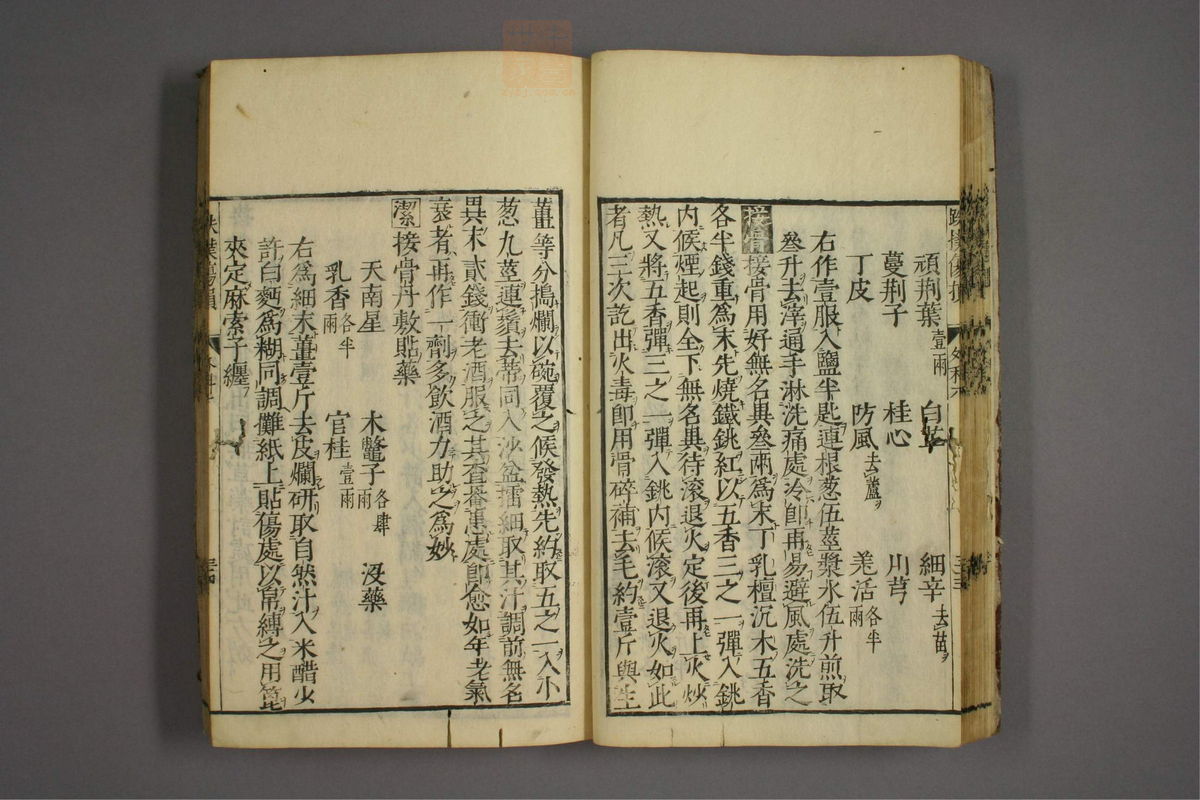 頑荆葉壹兩　白芷　細辛去苗
蔓荆子　桂心　川芎
丁皮　防風去蘆　羗活各半兩
右作壹服入鹽半匙連根葱伍莖漿水伍升煎取
叄升去滓通手淋洗痛處冷即再易避風處洗之
接骨接骨用好無名異叄兩爲末丁乳檀沉木五香
各半錢重爲末先燒鐵銚紅以五香三之一彈入銚
内候煙起則全下無名異待滚退火定後再上火炒
熱又將五香彈三之一彈入銚内候滚又退火如此
者凡三次訖出火毒即用骨碎補去毛約壹斤與生
薑等分搗爛以碗覆之候發熱先約取五之一入小
葱九莖連鬚去蒂同入沙盆擂細取其汁調前無名
異末貳錢衝老酒服之其査罨患處即愈如年老氣
衰者再作一劑多飲酒力助之爲妙
潔接骨丹敷貼藥
天南星　木鼈子各肆兩　没藥
乳香各半兩　官桂壹兩
右爲細末薑壹斤去皮爛研取自然汁入米醋少
許白麪爲糊同調攤紙上貼傷處以帛縛之用篦
夾定麻索子纏